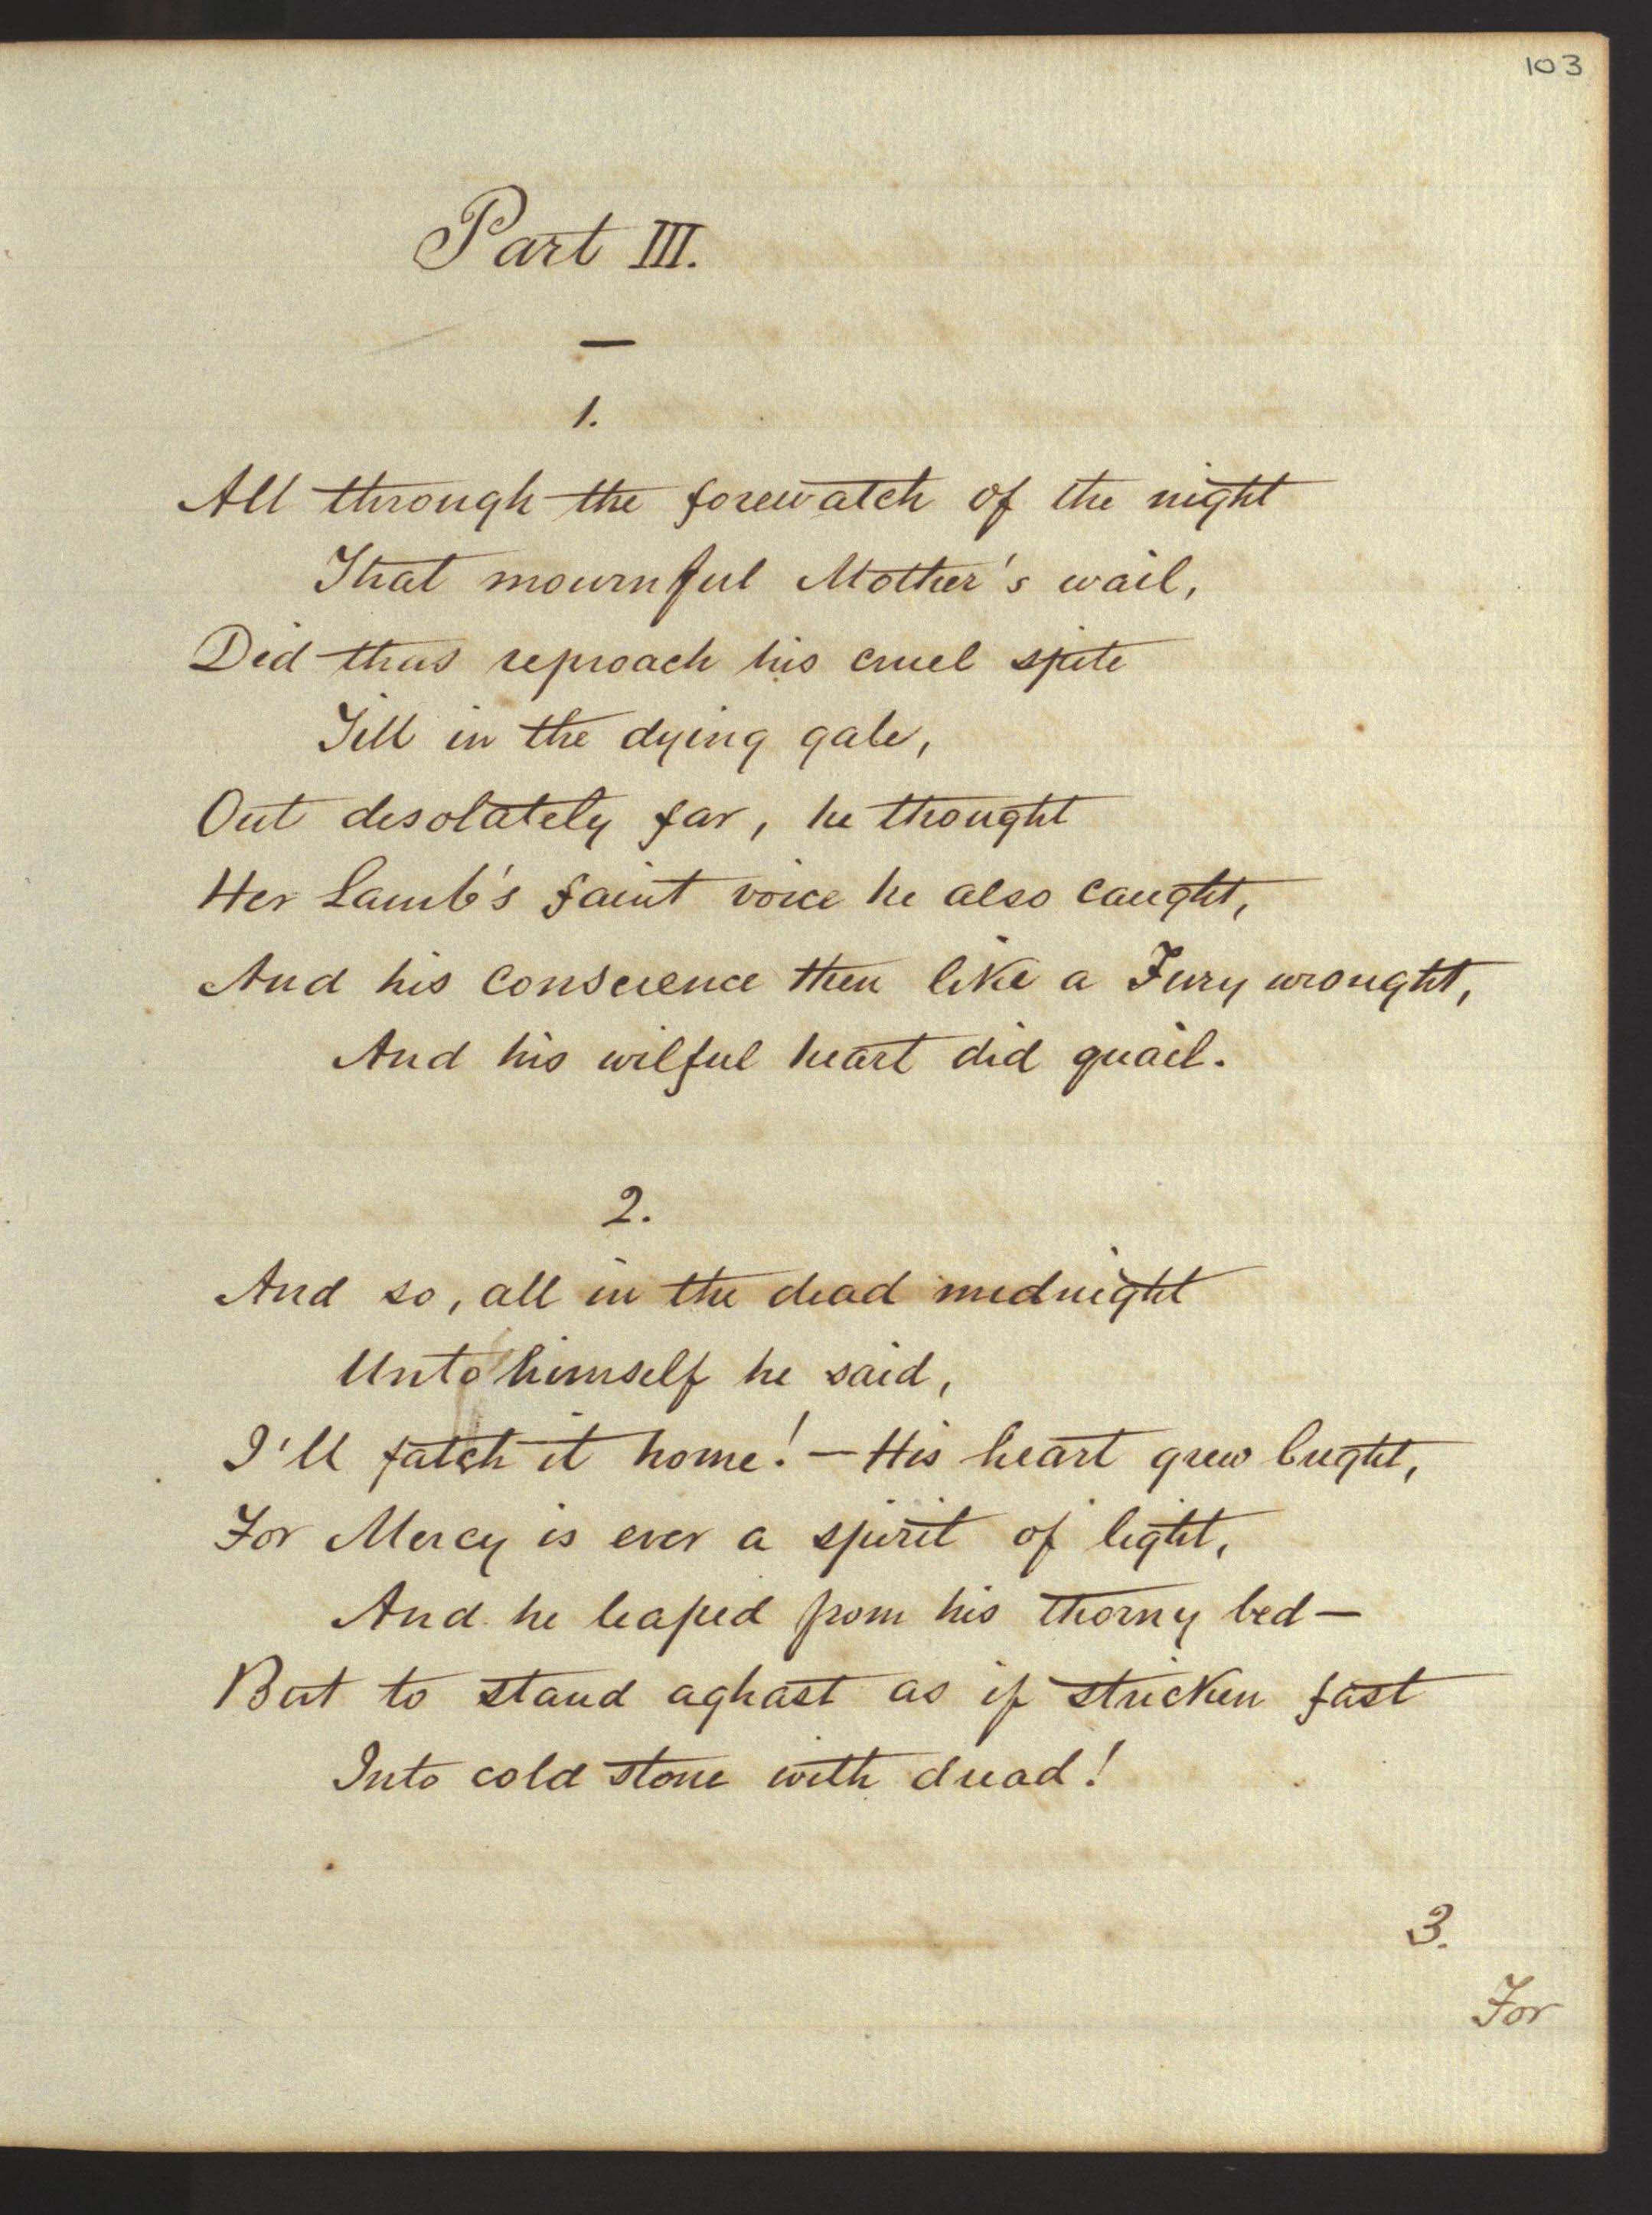 103
Part III.
—
1.
All through the forewatch of the night
That mournful Mother's wail,
Did thus reproach his cruel spite
Till in the dying gale,
Out desolately far, he thought
Her Lamb's faint voice he also caught,
And his conscience then like a Fury wrought,
And his wilful heart did quail.
2.
And so, all in the dead midnight
Unto himself he said,
I'll fatch it home! — His heart grew bright,
For Mercy is ever a spirit of light,
And he leaped from his thorny bed —
But to stand aghast as if stricken fast
Into cold stone with dread!
3.
For